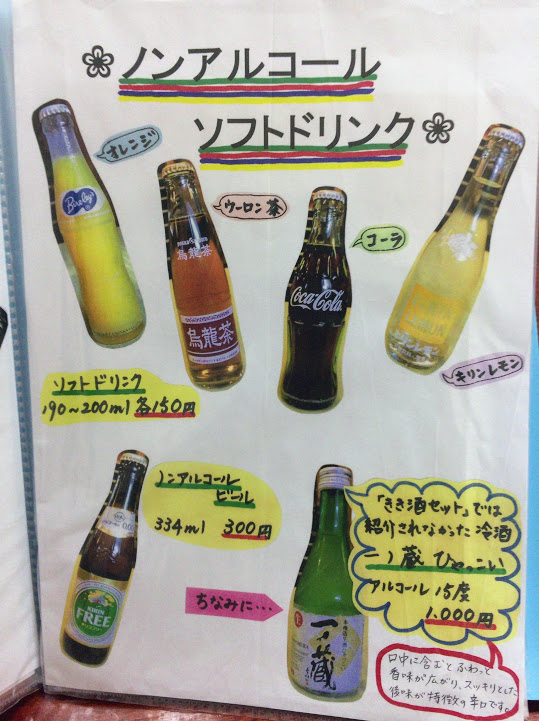 ノンアルコール
ソフトドリンク
オレンジ
ウーロン茶
コーラ
キリンレモン
Bireley's
烏龍茶
烏龍茶
Coca-Cola
ソフトドリンク
190〜200ml 各150円
ノンアルコール
ビール
334ml 300円
KIRIN
FREE
ちなみに…
一ノ蔵
「きき酒セット」では
紹介されなかった冷酒
一ノ蔵 ひゃっこい
アルコール15度
1,000円
口中に含むとふわっと
香味が広がり、スッキリとした
後味が特徴の辛口です。